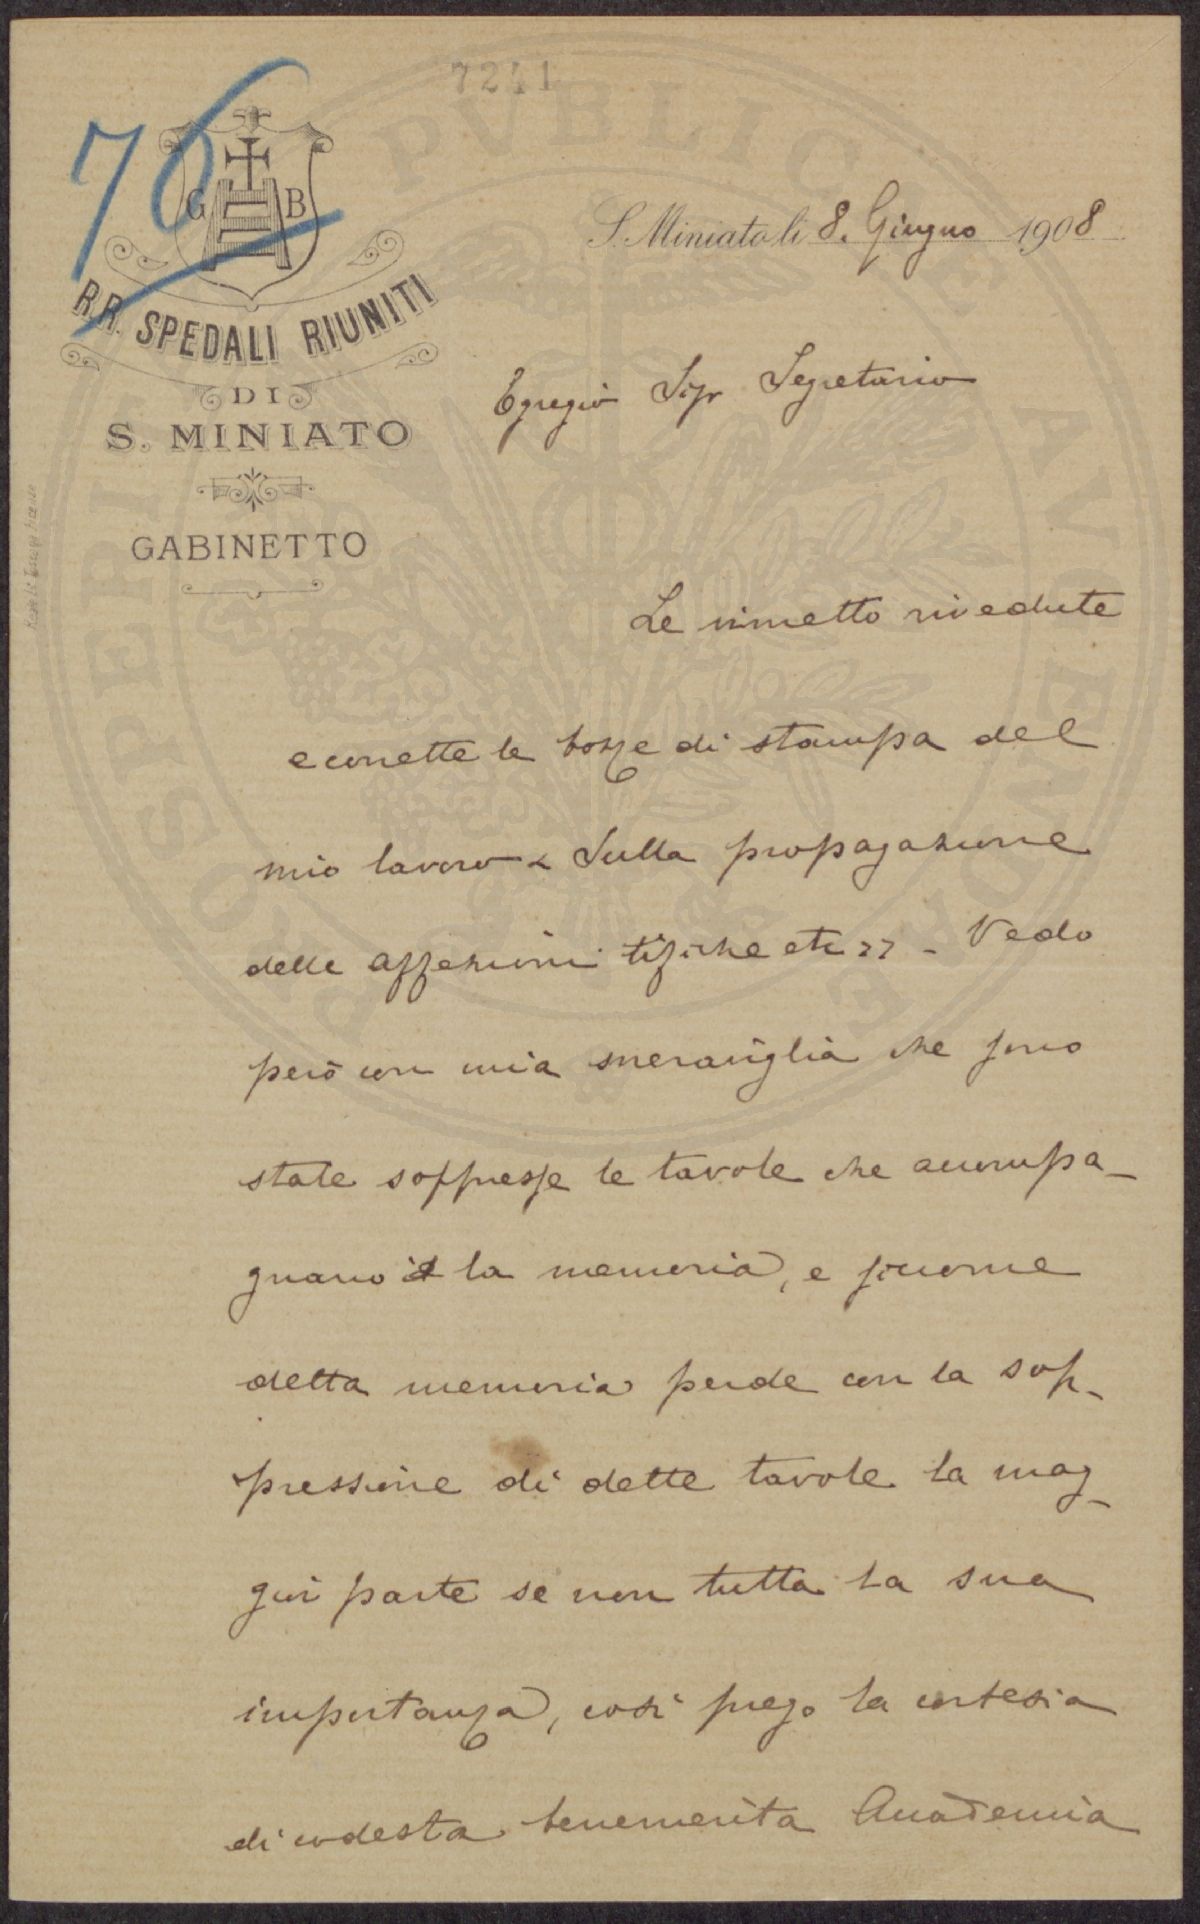 7241
76
G B
S. Miniato li 8. Giugno 1908
RR. SPEDALI RIUNITI
DI
S. MINIATO
GABINETTO
Egregio Sigr Segretario
Le rimetto rivedute
e corrette le bozze di stampa del
mio lavoro « Sulla propagazione
delle affezioni tifiche etc » - Vedo
però con mia meraviglia che sono
state soppresse le tavole che accompa-
gnano la memoria, e siccome
detta memoria perde con la sop-
pressione di dette tavole la mag-
gior parte se non tutta la sua
importanza, così prego la cortesia
di codesta benemerita Accademia
PVBLICAE
PROSPERITATI
AVGENDAE